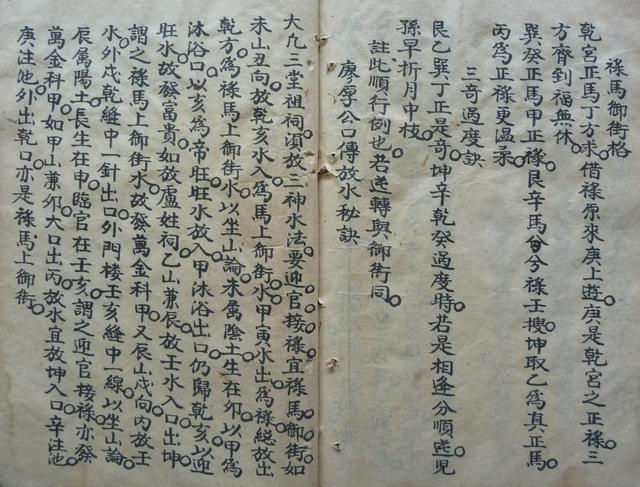 祿馬御街格
乾宮正馬丁方求。借祿原來庚上遊。庚是乾宮之正祿。三
方齊到福無休。
巽癸正馬甲正祿。艮辛馬兮兮祿壬搜。坤取乙為真正馬。
丙為正祿更溫柔。
三奇過度訣
艮乙巽丁正是奇。坤辛乾癸過度時。若是相逢分順逆。兒
孫早折月中枝。
註此順行例也。若逆轉與御街同。
廖厚公口傳放水秘訣
大凢三堂祖祠。須放三神水法。要迎官接祿。宜祿馬御街。如
未山丑向。放乾亥水入。為馬上御街水。甲寅水出。為祿。總放出
乾方。為祿馬上御街水。以坐山論。未属陰土。生在卯。以甲為
沐浴。口以亥為帝旺。旺水放入甲沐浴出口。仍歸乾亥。以迎
旺水。故發富貴。如放盧姓祠。乙山兼辰。放壬水入口。出坤
謂之祿馬上御街水。故發萬金科甲。又辰山戌向。內放壬
水。外戌乾縫中一針出口。外門楼壬亥縫中一線。以坐山論。
辰属陽土。長生在申。臨官在壬亥。謂之迎官接祿。亦發
萬金科甲。如甲山兼卯。大口出丙。放水宜放坤入口。辛注池。
庚注池外出乾口。亦是祿馬上御街。